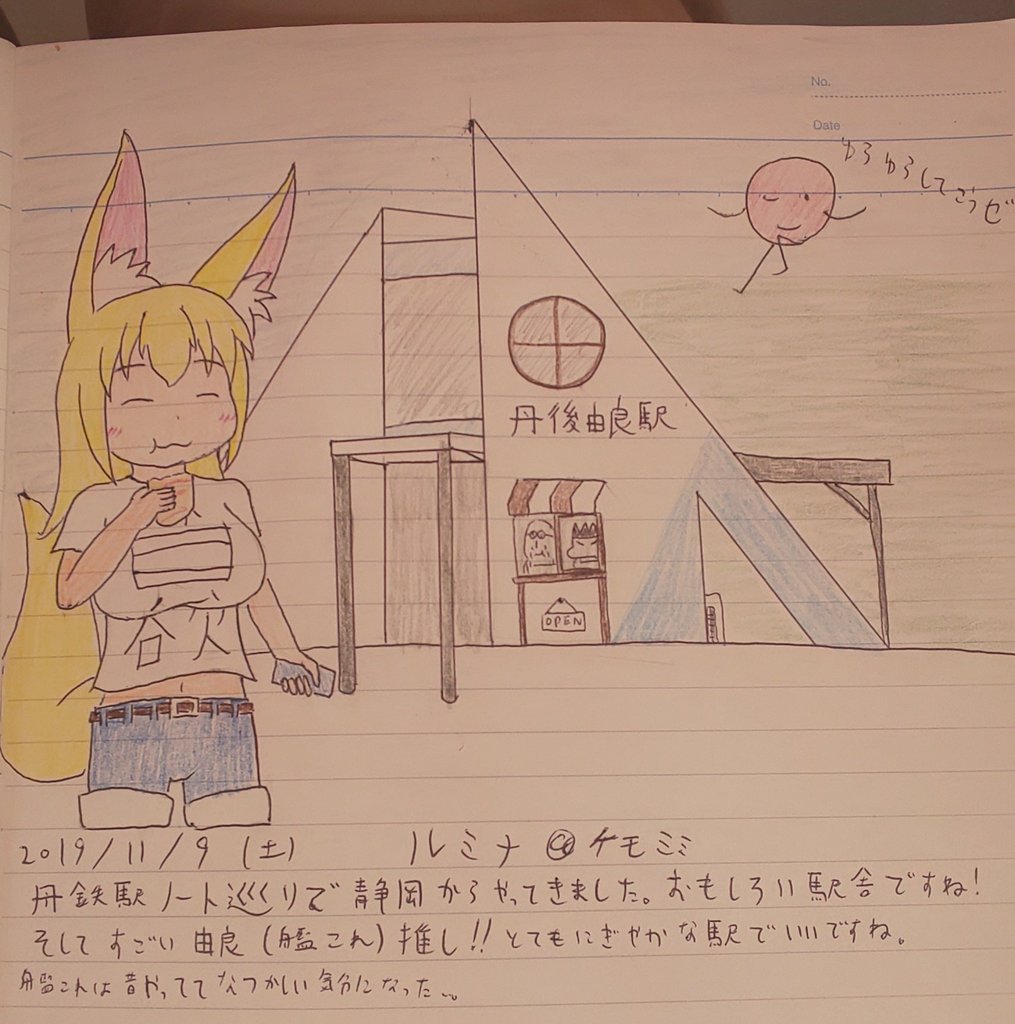 No.
Date
ゆらゆらしてこうぜ
丹後由良駅
OPEN
2019/11/9 (土) ルミナ@ケモミミ
丹鉄駅ノート巡りで静岡からやってきました。おもしろい駅舎ですね!
そしてすごい由良(艦これ)推し!!とてもにぎやかな駅でいいですね。
艦これは昔やっててなつかしい気分になった〜。